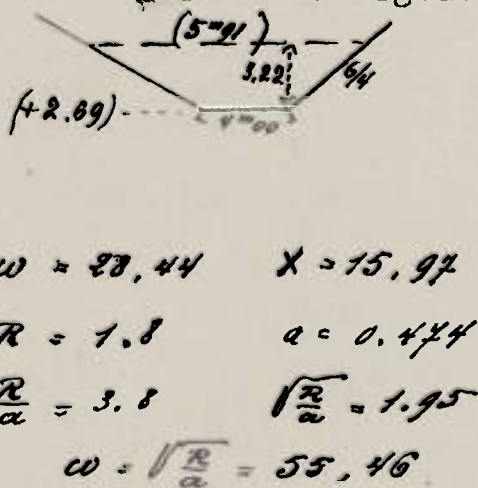 (5ᵐ91)
3,22
6/4
(+2.69)
4ᵐ00
w = 28,44 X = 15,97
R = 1.8 a = 0.474
R/a = 3.8 √R/a = 1.95
w = √R/a = 55,46